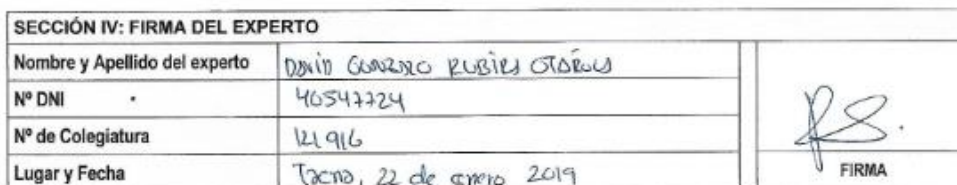 SECCIÓN IV: FIRMA DEL EXPERTO
Nombre y Apellido del experto DAVID GONZALO RUBIRA
Nº DNI 40547724
Nº de Colegiatura 121916
Lugar y Fecha Tacna, 22 de enero 2019
FIRMA